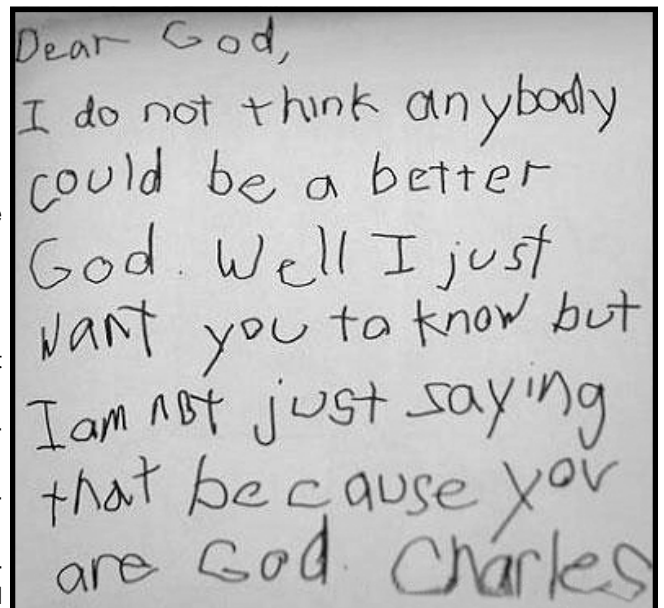 Dear God,
I do not think anybody
could be a better
God. Well I just
want you to know but
I am not just saying
that because you
are God. Charles